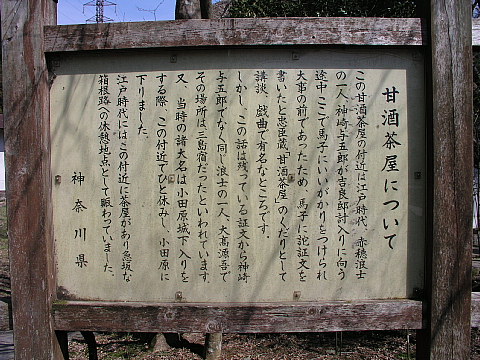 甘酒茶屋について
この甘酒茶屋の付近は江戸時代、赤穂浪士
の一人、神崎与五郎が吉良邸討入りに向う
途中、ここで馬子にいいがかりをつけられ
大事の前であったため、馬子に詑証文を
書いたと忠臣蔵"甘酒茶屋"のくだりとして
講談、戯曲で有名なところです。
しかし、この話は残っている証文から神崎
与五郎でなく同じ浪士の一人、大高源吾で
その場所は三島宿だったといわれています。
又、当時の諸大名は小田原城下入りを
する際、この付近でひと休みし、小田原に
下りました。
江戸時代にはこの付近に茶屋があり急坂な
箱根路への休憩地点として賑わっていました。
神奈川県